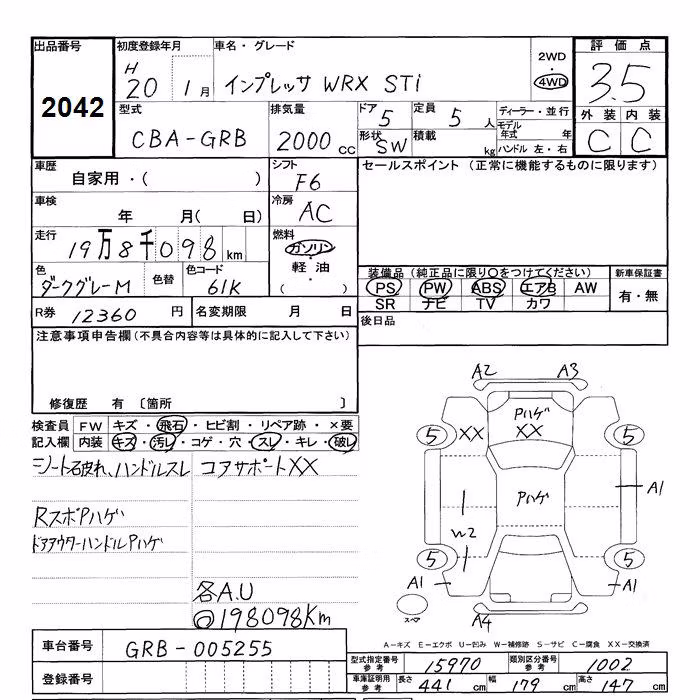 出品番号
2042
初度登録年月
H 20 1月
車名・グレード
インプレッサ WRX STi
2WD
・
4WD
評価点
3.5
外装 内装
C C
型式
CBA-GRB
排気量
2000 cc
ドア 5
定員 5 人
形状 SW
積載 kg
ディーラー・並行
モデル年式 年
ハンドル 左・右
車歴
自家用・( )
シフト
F6
セールスポイント (正常に機能するものに限ります)
車検
年 月( 日)
冷房
AC
走行
19万8千098 km
燃料
ガソリン
・
軽油
・
( )
色
ダークグレーM
色替
色コード
61K
装備品 (純正品に限り○をつけてください)
PS PW ABS エアB AW
SR ナビ TV カワ
新車保証書
有・無
R券 12360 円
名変期限 月 日
後日品
注意事項申告欄 (不具合内容等は具体的に記入して下さい)
修復歴 有 〔箇所 〕
検査員記入欄
FW キズ・飛石・ヒビ割・リペア跡・×要
内装 キズ・汚レ・コゲ・穴・スレ・キレ・破レ
シート破れ、ハンドルスレ
コアサポートXX
RスポPハゲ
ドアアウターハンドルPハゲ
各A.U
@198098Km
A2 A3
PハゲXX
XX
5 5
Pハゲ
A1
W2
5 5
A1 A1
A4
スペア
A-キズ E-エクボ U-凹み W-補修跡 S-サビ C-腐食 XX-交換済
車台番号
GRB-005255
登録番号
型式指定番号 参考 15970
類別区分番号 参考 1002
車庫証明用 参考
長さ 441 cm
幅 179 cm
高さ 147 cm